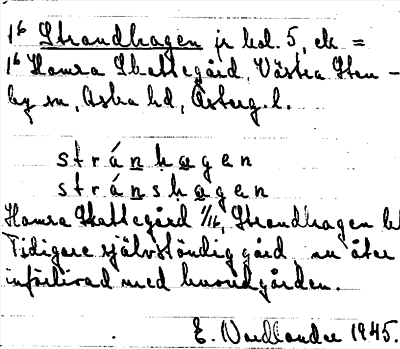 1⁶ Strandhagen jr kol. 5, ek =
1⁶ Hamra Skattegård, Västra Sten-
by sn, Aska hd, Österg. l.
stránhagen
stránshagen
Hamra Skattegård 1/16, Strandhagen
Tidigare självständig gård nu åter
införlivad med huvudgården.
E. Nordlander 1945.